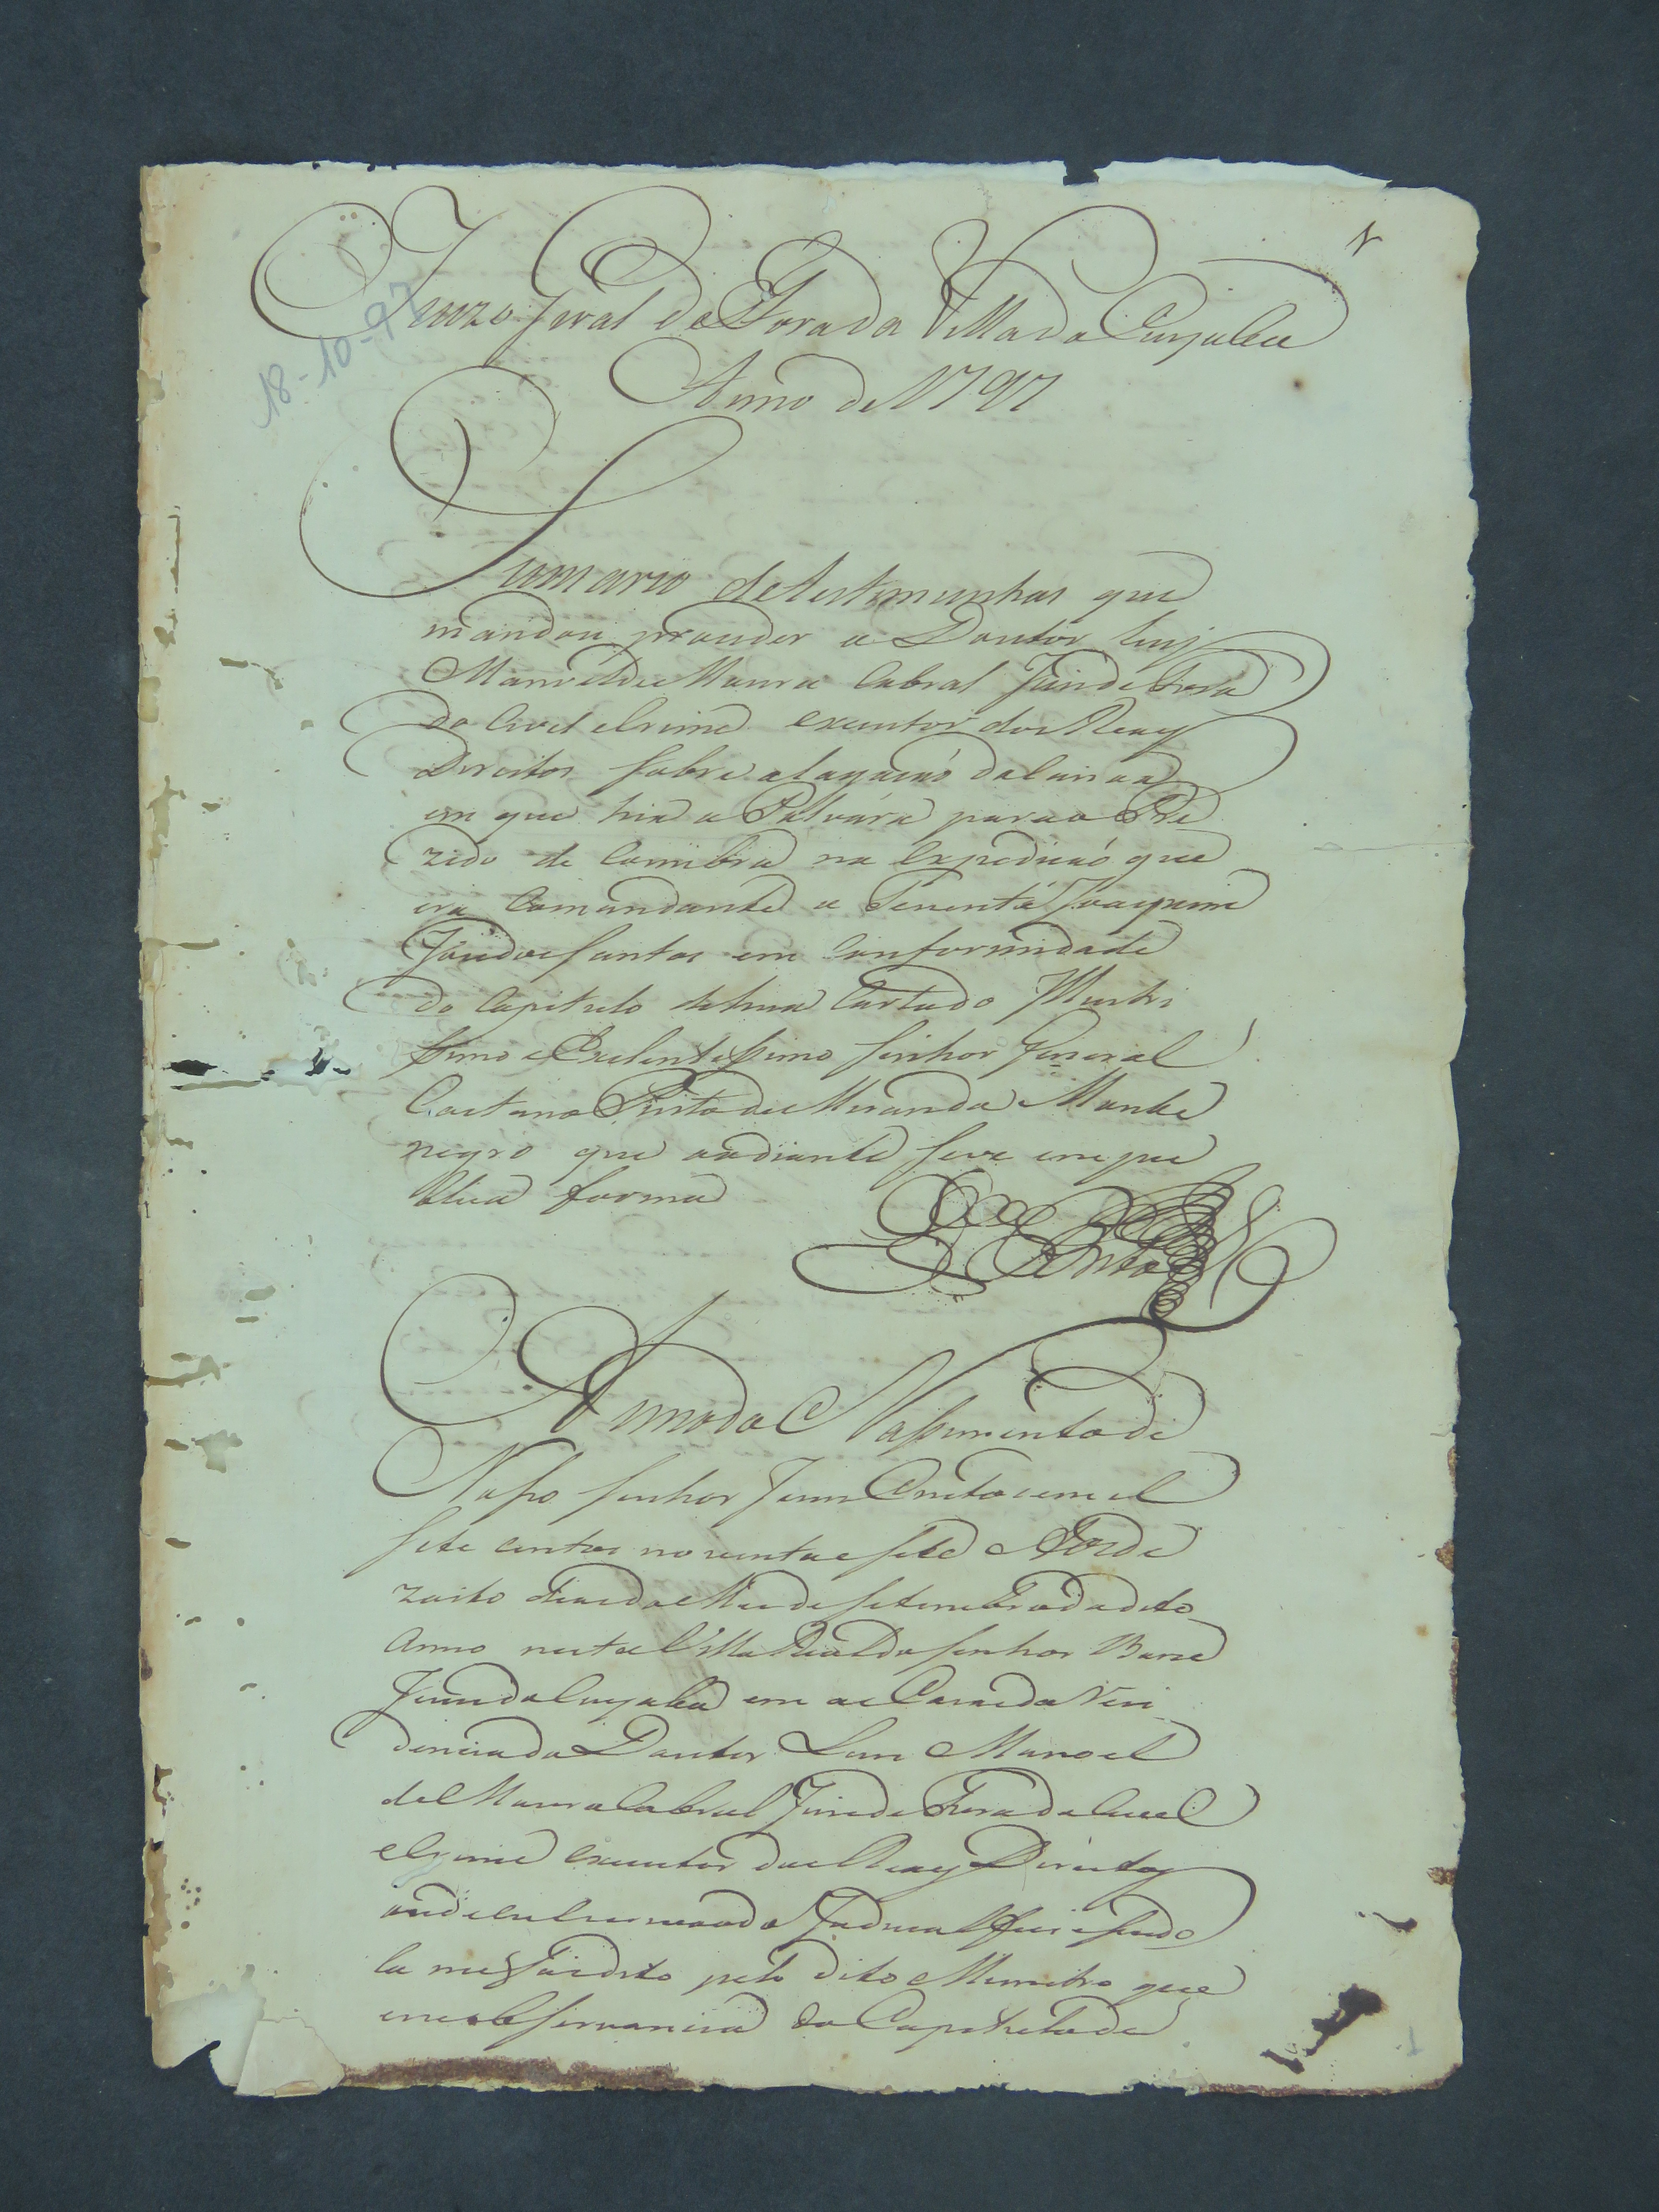 1
18-10-97
Juizo Geral do Fora da Villa do Cuyaba
Anno de 1797
Summario de testemunhas que
mandou proceder o Doutor Luis
Manoel de Moura Cabral Juis de Fora
do Civel e Crime executor dos Reaes
Direitos sobre alagação da Canoa
em que hia a Polvora para o Pre
zidio de Coimbra na Expedição que
era Comandante o Tenente Joaquim
Joze dos Santos em Conformidade
do Capitulo de hua Carta do Illustri
ssimo e Exelentissimo Senhor General
Caetano Pinto de Miranda Monte
negro que aodiante seve em pu
blica forma
Anno do Nassimento de
Nosso Senhor Jezus Cristo de mil
sete centos noventa e sete Aos de
zoito dias do Mes de Setembro do dito
Anno nesta Villa Real do Senhor Bom
Jezus do Cuyaba em as Cazas da Rezi
dencia do Doutor Luis Manoel
de Moura Cabral Juis de Fora do Civel
e Crime executor dos Reaes Direitos
onde eu Escrivao do Judicial fui e sendo
la me foi dito pelo dito Menistro que
em observancia do Capitulo de